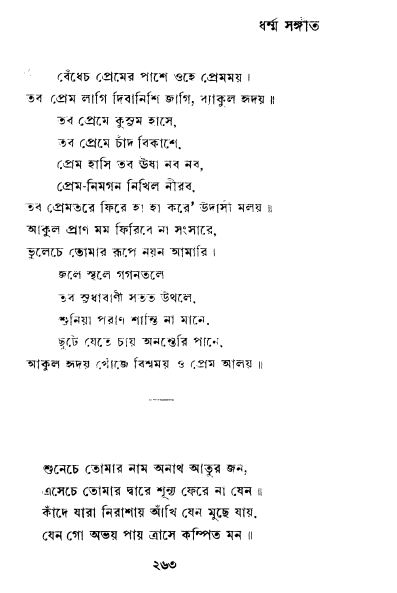 ধর্ম্ম সঙ্গীত
বেঁধেচ প্রেমের পাশে ওহে প্রেমময়।
তব প্রেম লাগি দিবানিশি জাগি, ব্যাকুল হৃদয়॥
তব প্রেমে কুসুম হাসে,
তব প্রেমে চাঁদ বিকাশে,
প্রেম হাসি তব ঊষা নব নব,
প্রেম-নিমগন নিখিল নীরব,
তব প্রেমতরে ফিরে হা হা করে' উদাসী মলয়॥
আকুল প্রাণ মম ফিরিবে না সংসারে,
ভুলেচে তোমার রূপে নয়ন আমারি।
জলে স্থলে গগনতলে
তব সুধাবাণী সতত উথলে,
শুনিয়া পরাণ শান্তি না মানে,
ছুটে যেতে চায় অনন্তেরি পানে,
আকুল হৃদয় খোঁজে বিশ্বময় ও প্রেম আলয়॥
শুনেচে তোমার নাম অনাথ আতুর জন,
এসেচে তোমার দ্বারে শূন্য ফেরে না যেন॥
কাঁদে যারা নিরাশায় আঁখি যেন মুছে যায়,
যেন গো অভয় পায় ত্রাসে কম্পিত মন॥
২৬৩